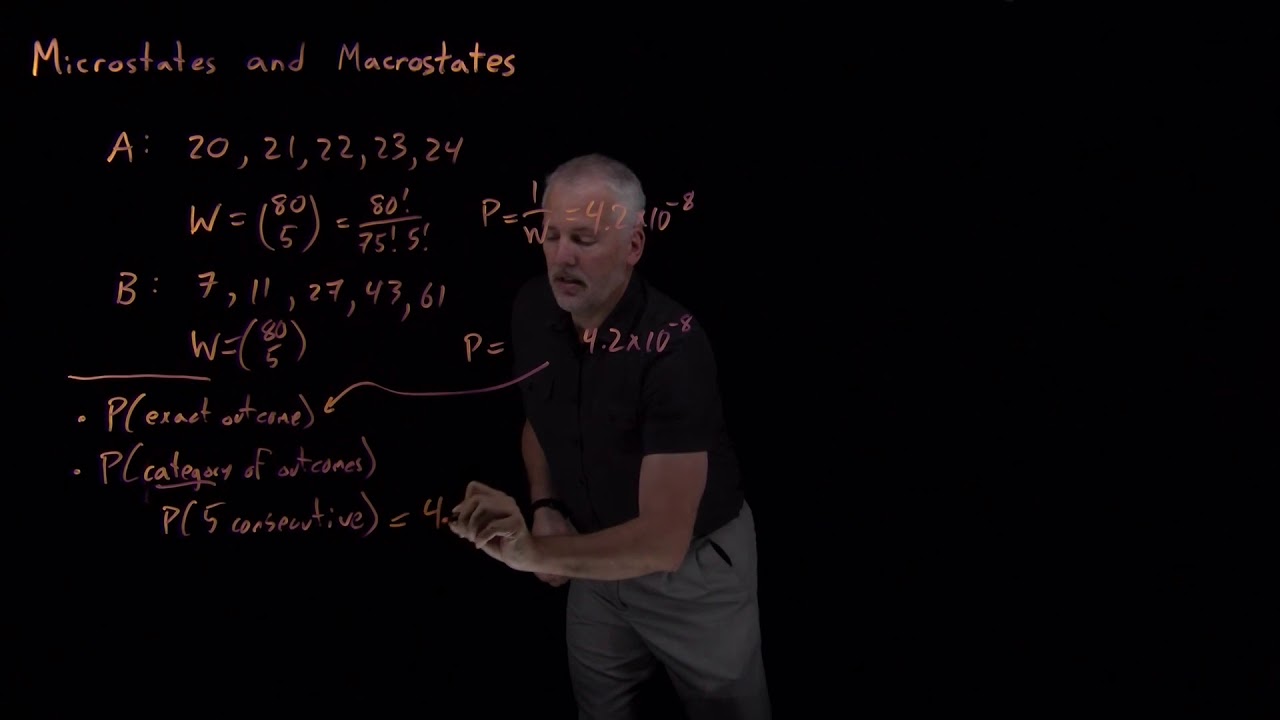 Microstates and Macrostates
A: 20, 21, 22, 23, 24
W = (80 5) = 80! / 75! 5! P = 1/W = 4.2×10⁻⁸
B: 7, 11, 27, 43, 61
W = (80 5) P = 4.2×10⁻⁸
• P(exact outcome)
• P(category of outcomes)
P(5 consecutive) = 4.